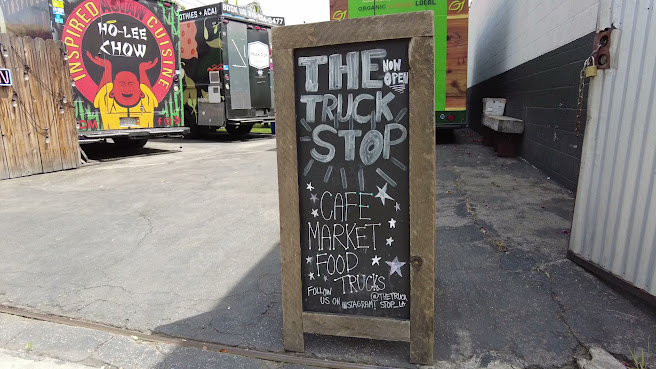 INSPIRED ASIAN CUISINE
HO-LEE
CHOW
OTHIES + ACAI
BOOK
ORGANIC
LOCAL
THE
NOW
OPEN
TRUCK
STOP
CAFE
MARKET
FOOD
TRUCKS
FOLLOW
US ON INSTAGRAM! @THETRUCK
STOP_LA